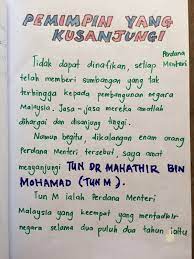 PEMIMPIN YANG
KUSANJUNGI
Tidak dapat dinafikan, setiap Perdana Menteri
telah memberi sumbangan yang tak
terhingga kepada pembangunan negara
Malaysia. Jasa-jasa mereka amatlah
dihargai dan disanjung tinggi.
Namun begitu, dikalangan enam orang
Perdana Menteri tersebut, saya amat
menyanjungi TUN DR MAHATHIR BIN
MOHAMAD (TUN M).
Tun M ialah Perdana Menteri
Malaysia yang keempat yang mentadbir
negara selama dua puluh dua tahun iaitu